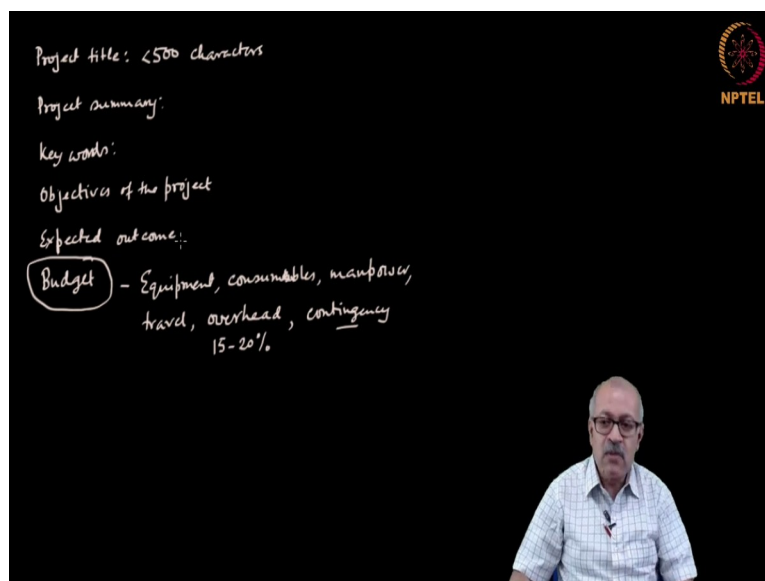 Project title: <500 characters
NPTEL
Project summary:
Key words:
Objectives of the project
Expected outcome:
Budget - Equipment, consumables, manpower,
travel, overhead, contingency
15-20%